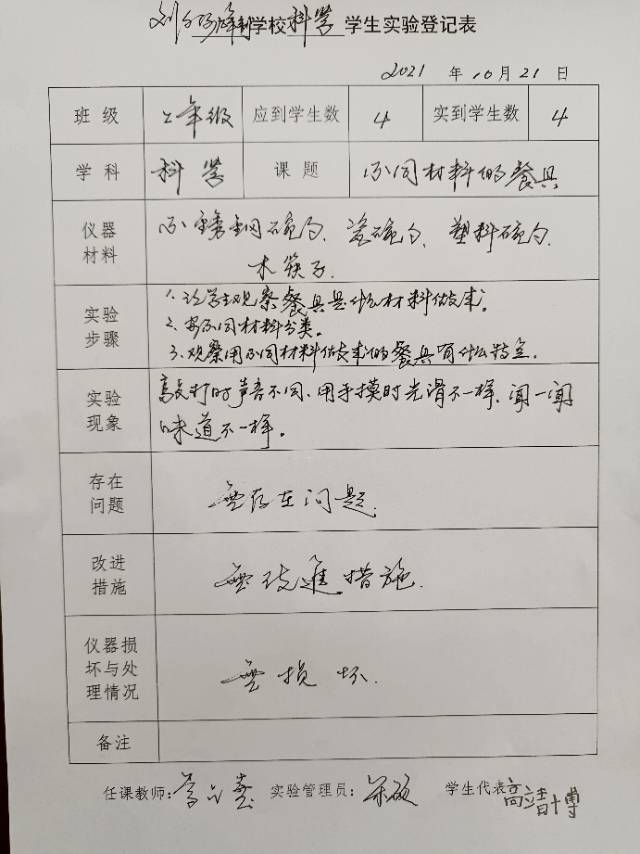 学校科学学生实验登记表
2021 年 10 月 21 日
班级 二年级 应到学生数 4 实到学生数 4
学科 科学 课题 不同材料的餐具
仪器材料 不锈钢碗勺、瓷碗勺、塑料碗勺、
木筷子.
实验步骤 1. 让学生观察餐具是什么材料做成。
2. 按不同材料分类。
3. 观察用不同材料做成的餐具有什么特点.
实验现象 敲打时声音不同、用手摸时光滑不一样、闻一闻
味道不一样。
存在问题 無存在问题.
改进措施 無改進措施.
仪器损坏与处理情况 無损坏.
备注
任课教师: 实验管理员: 学生代表 高靖博